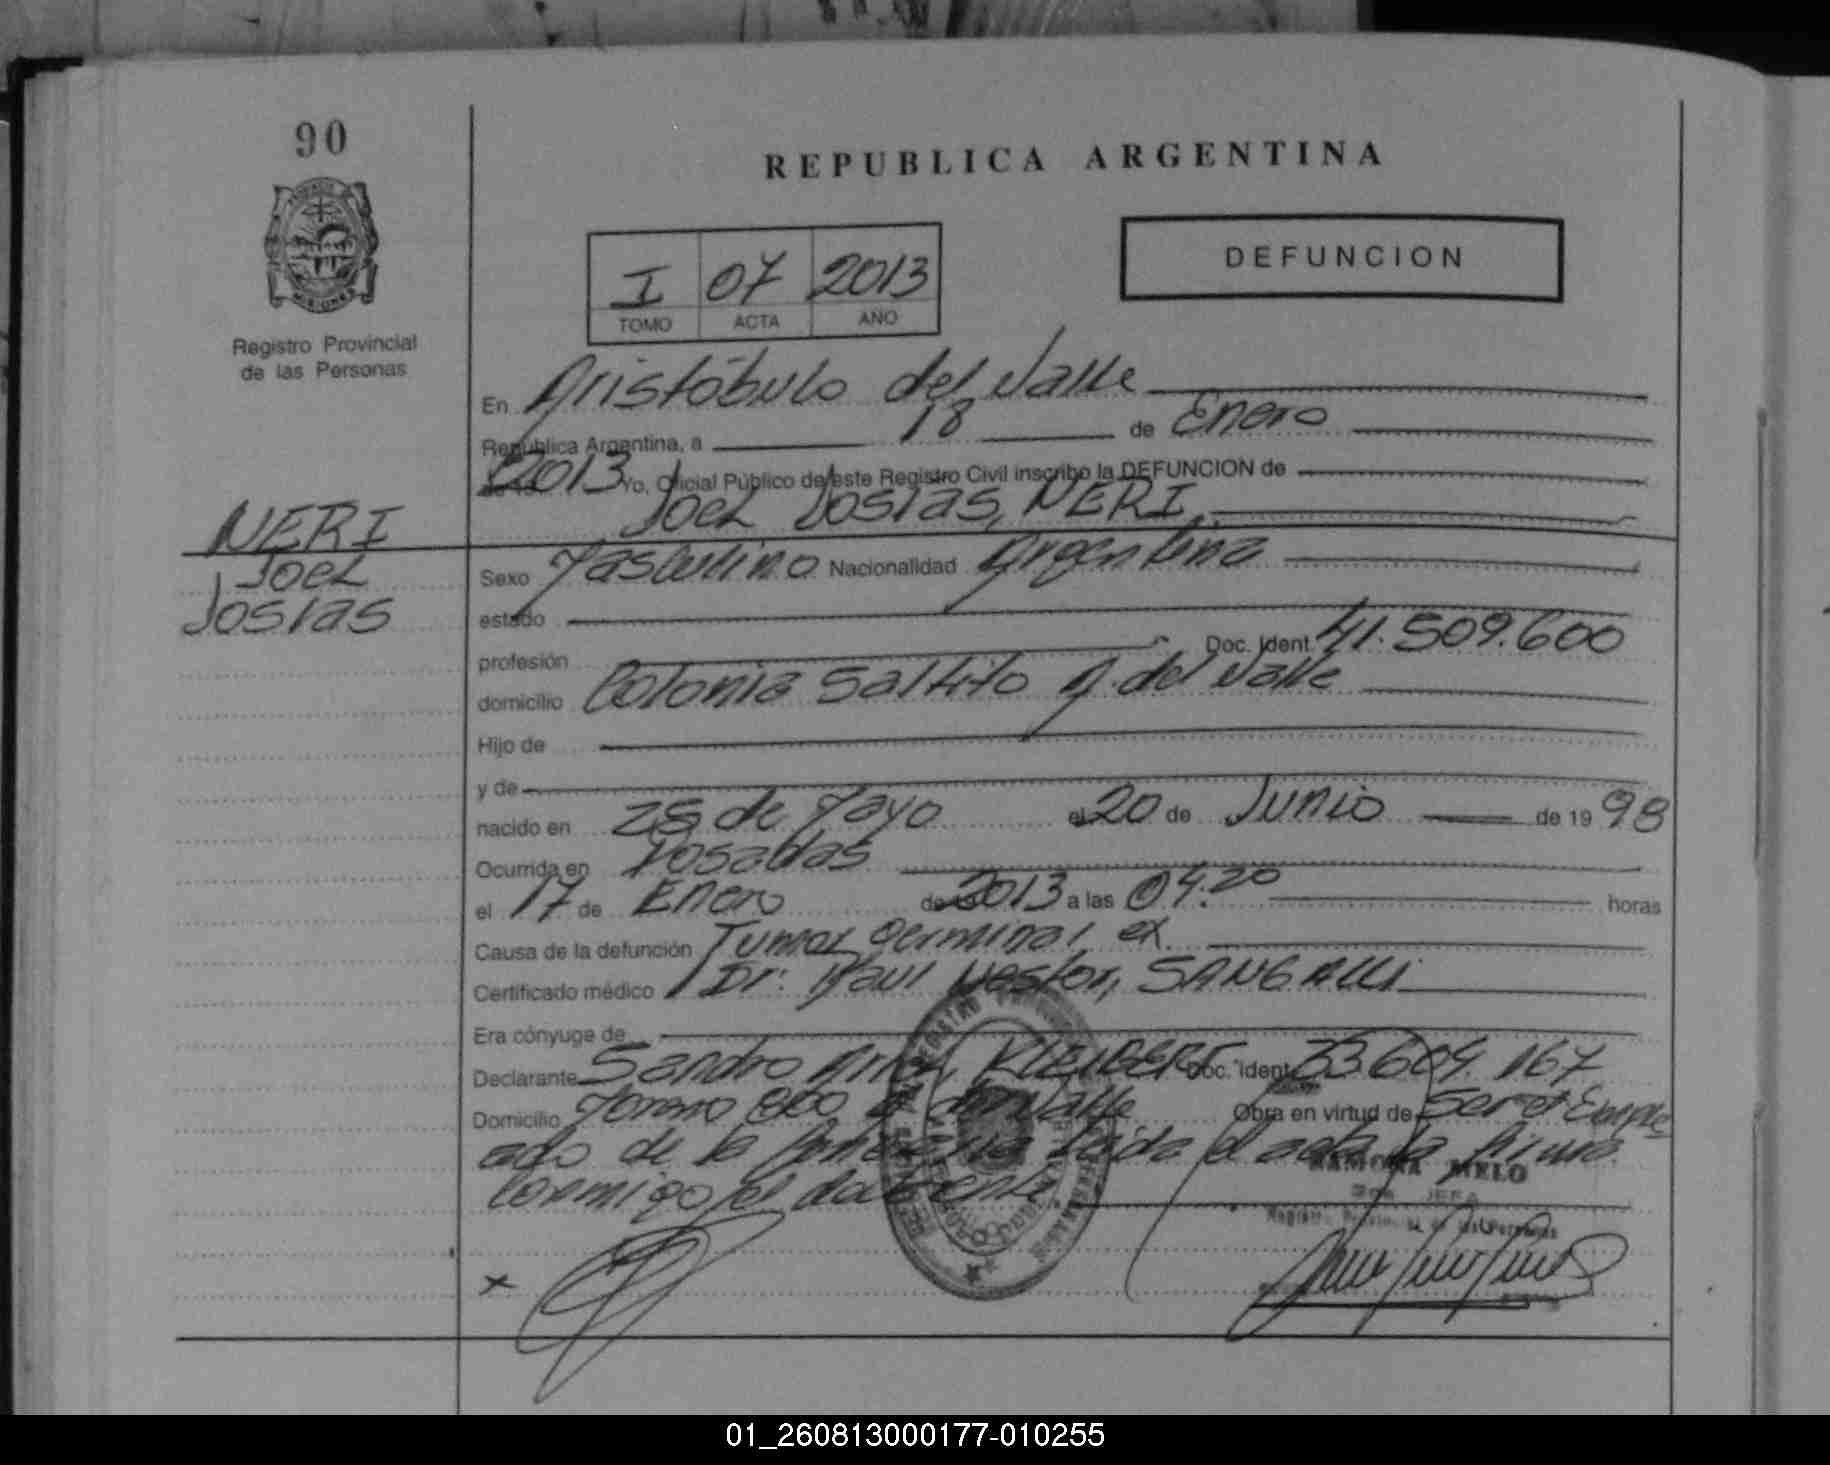 90
REPUBLICA ARGENTINA
DEFUNCION
I 07 2013
TOMO ACTA AÑO
MISIONES
Registro Provincial
de las Personas
En Aristóbulo del Valle
República Argentina, a 18 de Enero
de 2013 Yo, Oficial Público de este Registro Civil inscribo la DEFUNCION de
Joel Josias, NERI
NERI
Joel
Josias
Sexo Masculino Nacionalidad Argentina
estado
profesión Doc. Ident. 41.509.600
domicilio Colonia Saltito A. del Valle
Hijo de
y de
nacido en 25 de Mayo el 20 de Junio de 1998
Ocurrida en Posadas
el 17 de Enero de 2013 a las 04.20 horas
Causa de la defunción Tumor germinal, ex
Certificado médico Dr: Raul Nestor, SANGALLI
Era cónyuge de
Declarante Sandro KLEIBERT Doc. Ident. 23.604.167
Domicilio Moreno A. del Valle Obra en virtud de ser el Emple
ado de la Leida el acta la firma
conmigo el
RAMONA MELO
JEFA
Registro Provincial de las Personas
x
01_260813000177-010255